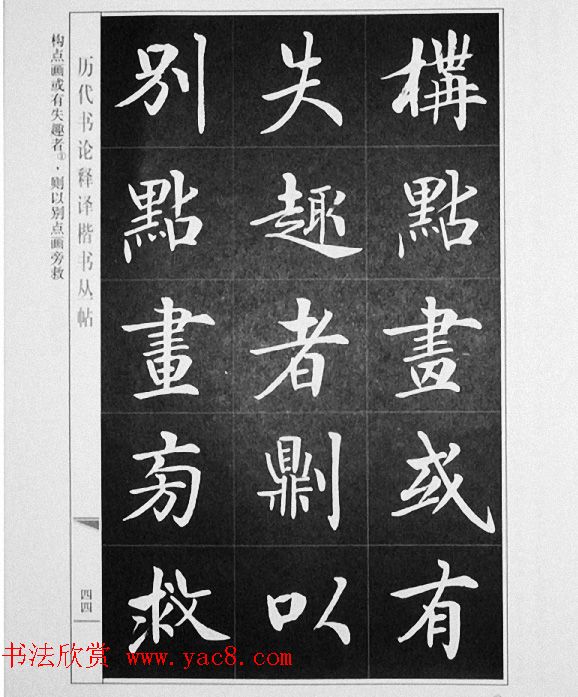 構點畫或有
失趣者則以
別點畫旁救
历代书论释译楷书丛帖
四四
构点画或有失趣者①，则以别点画旁救
书法欣赏 www.yac8.com